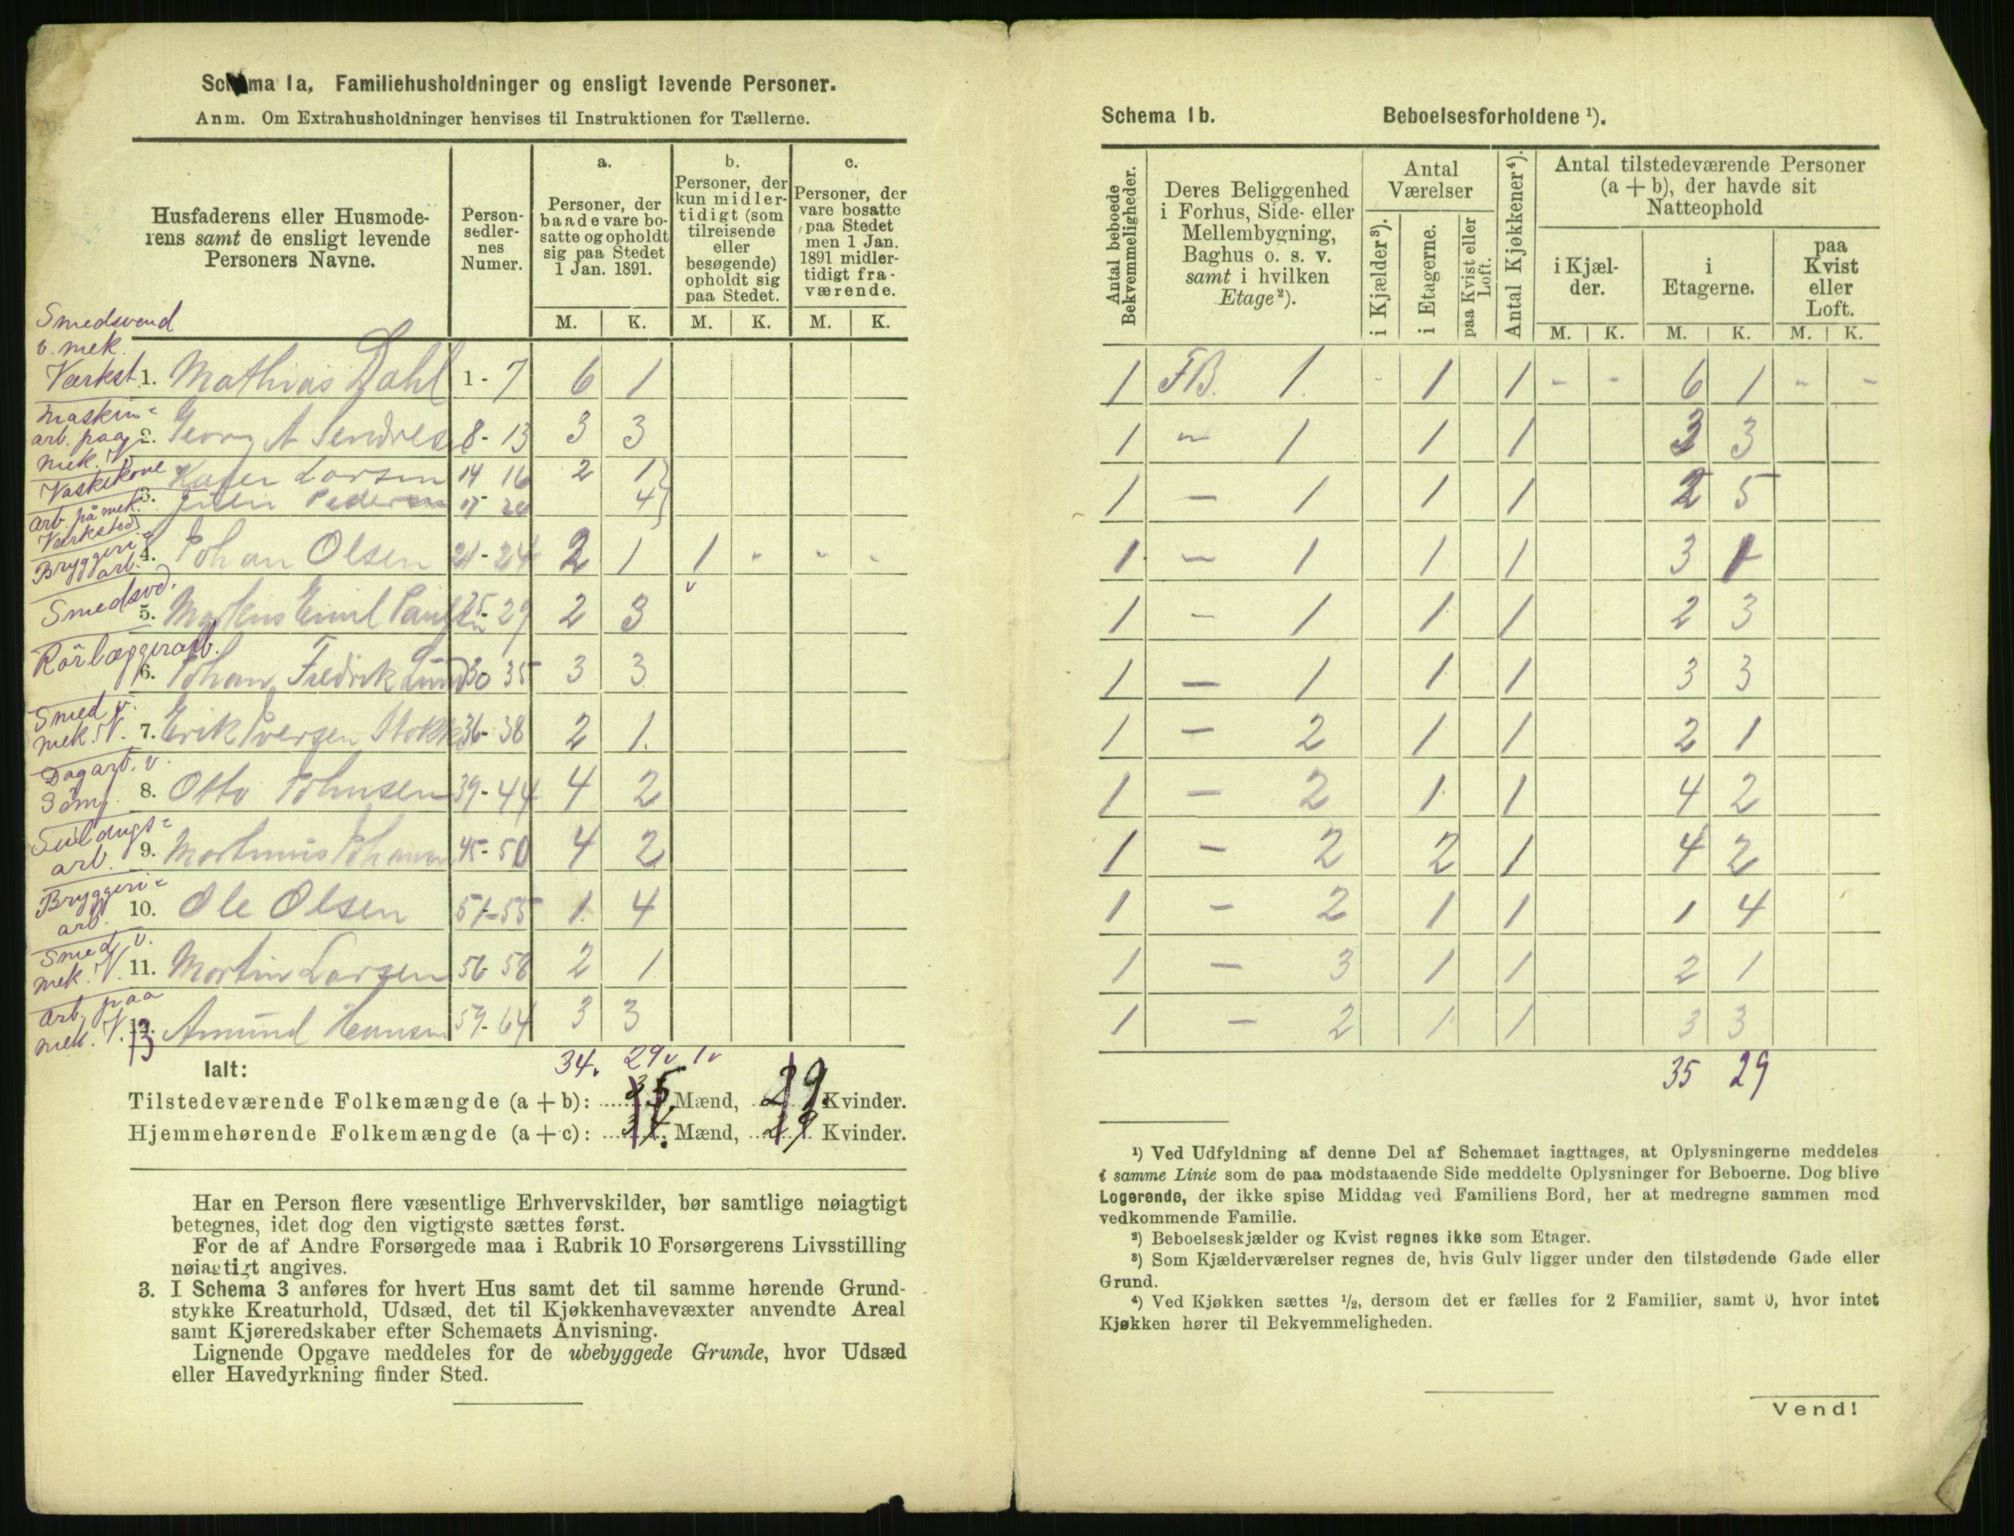 Schema 1a, Familiehusholdninger og ensligt levende Personer.
Anm. Om Extrahusholdninger henvises til Instruktionen for Tællerne.
Husfaderens eller Husmoderens samt de ensligt levende Personers Navne.
Personsedlernes Numer.
a.
Personer, der baade vare bosatte og opholdt sig paa Stedet 1 Jan. 1891.
b.
Personer, der kun midlertidigt (som tilreisende eller besøgende) opholdt sig paa Stedet.
c.
Personer, der vare bosatte paa Stedet men 1 Jan. 1891 midlertidigt fraværende.
M. K. M. K. M. K.
Smedsvend v. mek. Værkst. 1. Mathias Dahl 1 - 7 6 1
Maskinarb. paa mek. V. 2. Georg A 8 - 13 3 3
Vaskekone Karen Larsen 14 16 2 1
arb. på mek. Værksted 3. Pedersen 17 20 4
Bryggeriarb. 4. Johan Olsen 21 - 24 2 1 1 - - -
Smedsvd. 5. Markus Emil Paulsen 25 - 29 2 3
Rörlæggerarb. 6. Johan Fredrik Lund 30 35 3 3
Smed v. mek. V. 7. Erik Iversen 36 - 38 2 1
Dagarb. v. Tømt. 8. Otto Johnsen 39 - 44 4 2
arb. 9. Martinius Johansen 45 - 50 4 2
Bryggeriarb. 10. Ole Olsen 51 - 55 1 4
Smed v. mek. V. 11. Martin Larsen 56 58 2 1
arb. paa mek. V. 13 Amund Hansen 59 - 64 3 3
Ialt: 34. 29 v 1 v
Tilstedeværende Folkemængde (a + b): 35. Mænd, 29. Kvinder.
Hjemmehørende Folkemængde (a + c): 34. Mænd, 29 Kvinder.
Har en Person flere væsentlige Erhvervskilder, bør samtlige nøiagtigt
betegnes, idet dog den vigtigste sættes først.
For de af Andre Forsørgede maa i Rubrik 10 Forsørgerens Livsstilling
nøiagtigt angives.
3. I Schema 3 anføres for hvert Hus samt det til samme hørende Grund-
stykke Kreaturhold, Udsæd, det til Kjøkkenhavevæxter anvendte Areal
samt Kjøreredskaber efter Schemaets Anvisning.
Lignende Opgave meddeles for de ubebyggede Grunde, hvor Udsæd
eller Havedyrkning finder Sted.
Schema 1b. Beboelsesforholdene ¹).
Antal beboede Bekvemmeligheder.
Deres Beliggenhed i Forhus, Side- eller Mellembygning, Baghus o. s. v. samt i hvilken Etage ²).
Antal Værelser
i Kjælder ³).
i Etagerne.
paa Kvist eller Loft.
Antal Kjøkkener ⁴).
Antal tilstedeværende Personer (a + b), der havde sit Natteophold
i Kjælder.
i Etagerne.
paa Kvist eller Loft.
M. K. M. K. M. K.
1 FB. 1. - 1 1 - - 6 1 - -
1 - 1 1 1 3 3
1 - 1 1 1 2 5
1 - 1 1 1 3 1
1 - 1 1 1 2 3
1 - 1 1 1 3 3
1 - 2 1 1 2 1
1 - 2 1 1 4 2
1 - 2 2 1 4 2
1 - 2 1 1 1 4
1 - 3 1 1 2 1
1 - 2 1 1 3 3
35 29
¹) Ved Udfyldning af denne Del af Schemaet iagttages, at Oplysningerne meddeles
i samme Linie som de paa modstaaende Side meddelte Oplysninger for Beboerne. Dog blive
Logerende, der ikke spise Middag ved Familiens Bord, her at medregne sammen med
vedkommende Familie.
²) Beboelseskjælder og Kvist regnes ikke som Etager.
³) Som Kjælderværelser regnes de, hvis Gulv ligger under den tilstødende Gade eller
Grund.
⁴) Ved Kjøkken sættes ½, dersom det er fælles for 2 Familier, samt 0, hvor intet
Kjøkken hører til Bekvemmeligheden.
Vend!